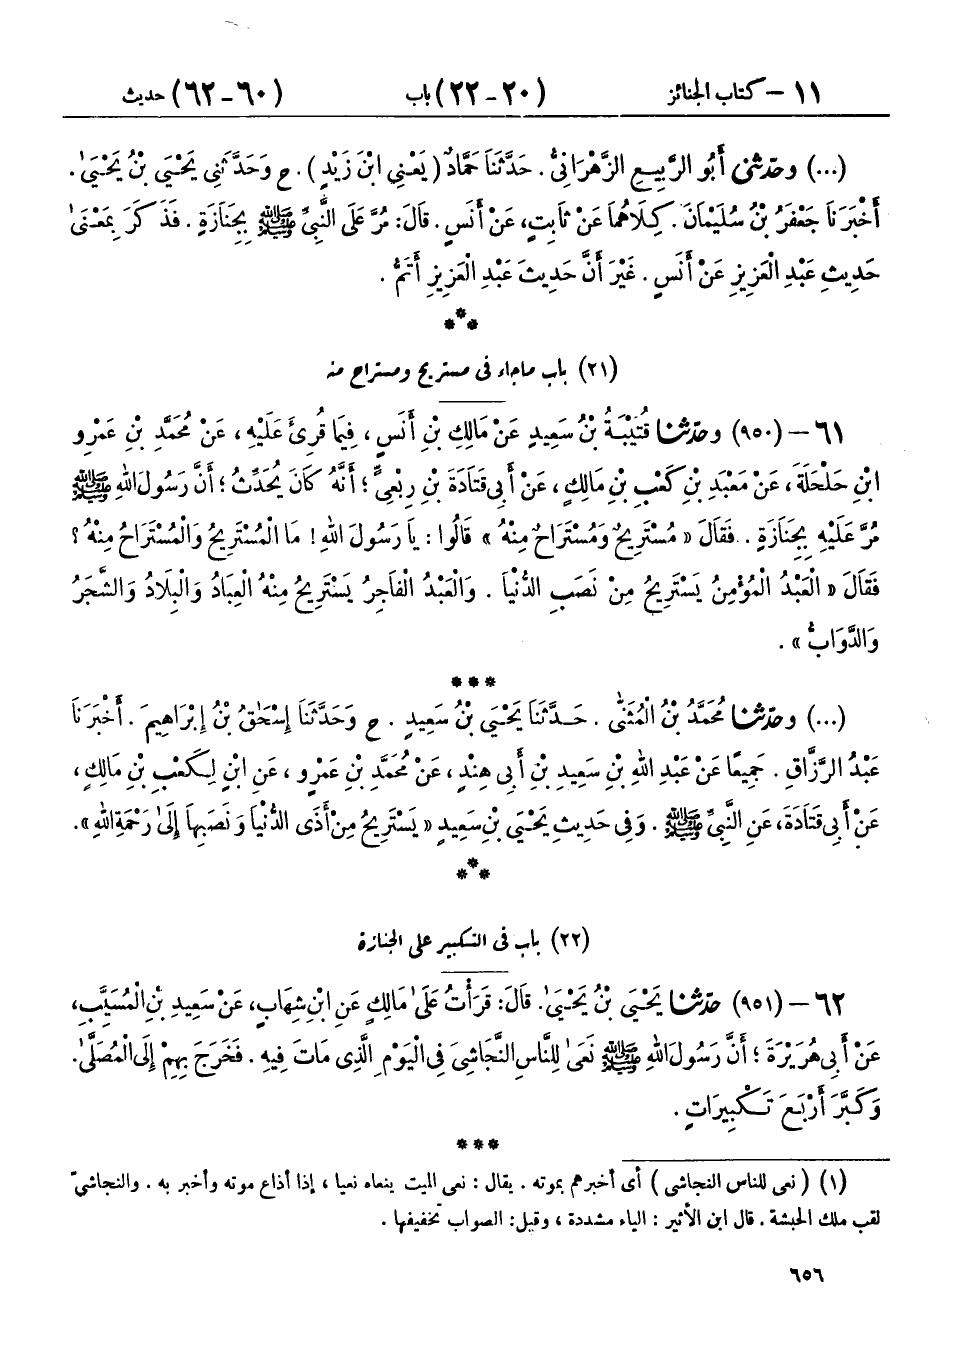 ١١ - كتاب الجنائز (٢٠ - ٢٢) باب (٦٠ - ٦٢) حديث
(...) وحدّثنى أَبُو الرَّبِيعِ الزَّهْرَانِىُّ. حَدَّثَنَا حَمَّادٌ (يَعْنِي ابْنَ زَيْدٍ). ح وَحَدَّثَنِي يَحْيَىٰ بْنُ يَحْيَىٰ.
أَخْبَرَنَا جَعْفَرُ بْنُ سُلَيْمَانَ. كِلَاهُمَا عَنْ ثَابِتٍ، عَنْ أَنَسٍ. قَالَ: مُرَّ عَلَى النَّبِيِّ ﷺ بِجَنَازَةٍ. فَذَكَرَ بِمَعْنَىٰ
حَدِيثِ عَبْدِ الْعَزِيزِ عَنْ أَنَسٍ. غَيْرَ أَنَّ حَدِيثَ عَبْدِ الْعَزِيزِ أَتَمُّ.
***
(٢١) باب ماجاء فى مستريح ومستراح منه
٦١ - (٩٥٠) وحدّثنا قُتَيْبَةُ بْنُ سَعِيدٍ عَنْ مَالِكِ بْنِ أَنَسٍ، فِيمَا قُرِئَ عَلَيْهِ، عَنْ مُحَمَّدِ بْنِ عَمْرِو
ابْنِ حَلْحَلَةَ، عَنْ مَعْبَدِ بْنِ كَعْبِ بْنِ مَالِكٍ، عَنْ أَبِي قَتَادَةَ بْنِ رِبْعِيٍّ؛ أَنَّهُ كَانَ يُحَدِّثُ؛ أَنَّ رَسُولَ اللهِ ﷺ
مُرَّ عَلَيْهِ بِجَنَازَةٍ. فَقَالَ «مُسْتَرِيحٌ وَمُسْتَرَاحٌ مِنْهُ» قَالُوا: يَا رَسُولَ اللهِ! مَا الْمُسْتَرِيحُ وَالْمُسْتَرَاحُ مِنْهُ؟
فَقَالَ «الْعَبْدُ الْمُؤْمِنُ يَسْتَرِيحُ مِنْ نَصَبِ الدُّنْيَا. وَالْعَبْدُ الْفَاجِرُ يَسْتَرِيحُ مِنْهُ الْعِبَادُ وَالْبِلَادُ وَالشَّجَرُ
وَالدَّوَابُّ».
***
(...) وحدّثنا مُحَمَّدُ بْنُ الْمُثَنَّىٰ. حَدَّثَنَا يَحْيَى بْنُ سَعِيدٍ. ح وَحَدَّثَنَا إِسْحَٰقُ بْنُ إِبْرَاهِيمَ. أَخْبَرَنَا
عَبْدُ الرَّزَّاقِ. جَمِيعًا عَنْ عَبْدِ اللهِ بْنِ سَعِيدِ بْنِ أَبِي هِنْدٍ، عَنْ مُحَمَّدِ بْنِ عَمْرٍو، عَنِ ابْنٍ لِكَعْبِ بْنِ مَالِكٍ،
عَنْ أَبِي قَتَادَةَ، عَنِ النَّبِيِّ ﷺ. وَفِي حَدِيثِ يَحْيَى بْنِ سَعِيدٍ «يَسْتَرِيحُ مِنْ أَذَى الدُّنْيَا وَنَصَبِهَا إِلَىٰ رَحْمَةِ اللهِ».
***
(٢٢) باب فى التكبير على الجنازة
٦٢ - (٩٥١) حدّثنا يَحْيَىٰ بْنُ يَحْيَىٰ. قَالَ: قَرَأْتُ عَلَىٰ مَالِكٍ عَنِ ابْنِ شِهَابٍ، عَنْ سَعِيدِ بْنِ الْمُسَيَّبِ،
عَنْ أَبِي هُرَيْرَةَ؛ أَنَّ رَسُولَ اللهِ ﷺ نَعَىٰ لِلنَّاسِ النَّجَاشِيَ فِي الْيَوْمِ الَّذِي مَاتَ فِيهِ. فَخَرَجَ بِهِمْ إِلَى الْمُصَلَّىٰ.
وَكَبَّرَ أَرْبَعَ تَكْبِيرَاتٍ.
***
(١) (نعى للناس النجاشى) أى أخبرهم بموته. يقال: نعى الميت ينعاه نعيا، إذا أذاع موته وأخبر به. والنجاشىّ
لقب ملك الحبشة. قال ابن الأثير: الياء مشددة، وقيل: الصواب تخفيفها.
٦٥٦